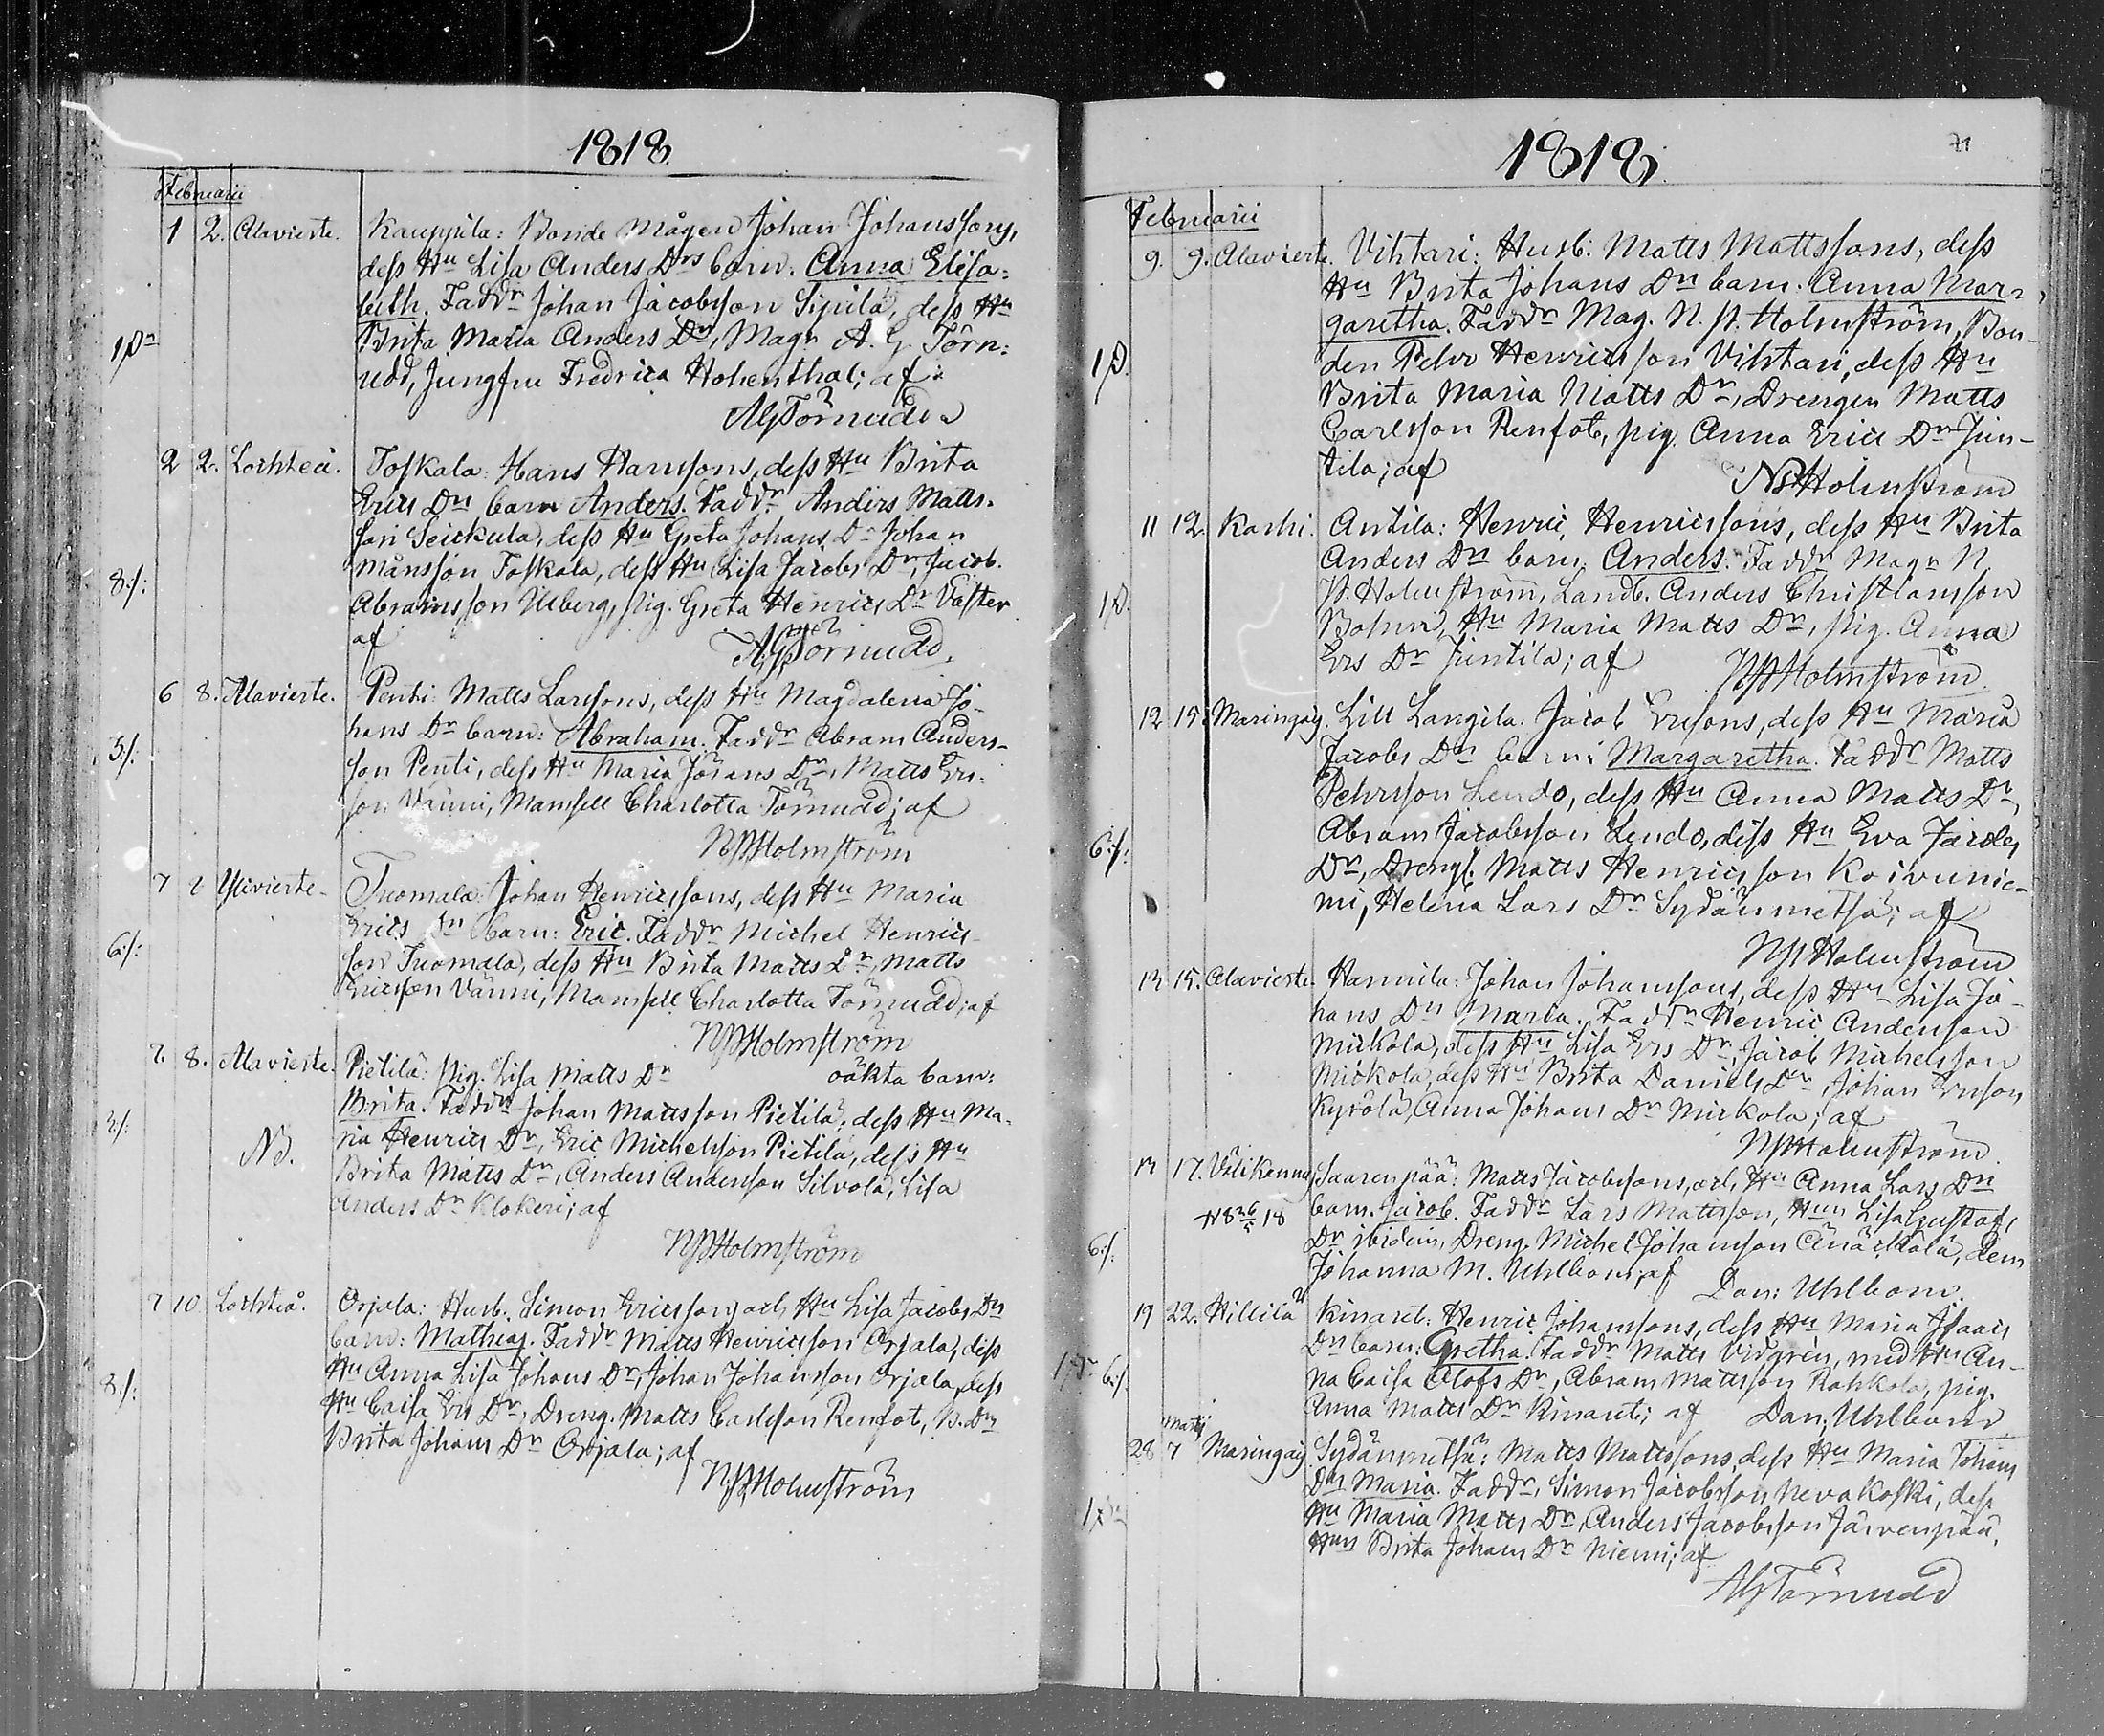 1818.
Februarii
1 2. Alavierte. Kauppila: Bonde Mågen Johan Johanssons,
dess Hu Lisa Anders Drs barn. Anna Elisa-
beth. Faddr Johan Jacobsson Sipilä, dess Hu
Brita Maria Anders Dr, Magr A. G. Törn-
udd, Jungfru Fredrica Hohenthal; af
AGTörnudd
2 2. Lochteå. Toskala: Hans Hanssons, dess Hu Brita
Erics Drs barn Anders. Faddr Anders Matts-
son Seickula, dess Hu Greta Johans Dr Johan
Månsson Toskala, dess Hu Lisa Jacobs Dr, Jacob
Abramsson Ulberg, pig. Greta Henrics Dr Väster
8:/:
af
AGTörnudd.
6 8. Alavierte. Penti: Matts Larssons, dess Hu Magdalena Jo-
hans Dr barn: Abraham. Faddr Abram Anders-
3:/:
son Penti, dess Hu Maria Johans Dr, Matts Eri-
son Vänni, Mamsell Charlotta Törnudd; af
NPHolmström
7 Ylivierte- Tuomala: Johan Henricssons, dess Hu Maria
Erics Dr barn: Eric. Faddr Michel Henrics-
6:/:
son Tuomala, dess Hu Brita Matts Dr, Matts
Ericsson Vänni, Mamsell Charlotta Törnudd; af
NPHolmström
7. 8. Alavierte. Pietilä: Pig. Lisa Matts Dr oäkta barn:
Brita. Faddr Johan Mattsson Pietilä, dess Hu Ma-
ria Henrics Dr, Eric Michelsson Pietilä, dess Hu
NB.
Brita Matts Dr, Anders Andersson Silvola, Lisa
Anders Dr Klokeri; af
NPHolmström
7 10 Lochteå. Orjala: Husb. Simon Ericssons och Hu Lisa Jacobs Drs
barn: Mathias. Faddr Matts Henricsson Orjala, dess
Hu Anna Lisa Johans Dr, Johan Johansson Orjala, dess
8:/:
Hu Caisa Ers Dr, Dreng. Matts Carlsson Renfot, B. Dr
Brita Johans Dr Orjala; af
NPHolmström
1818.
71
Februarii
9. 9. Alavierte. Vihtari: Husb: Matts Mattssons, dess
Hu Brita Johans Drs barn. Anna Mar-
garetha. Faddr Mag. N. P. Holmström, Bon-
den Pehr Henricsson Vihtari, dess Hu
Brita Maria Matts Dr, Drengen Matts
Carlsson Renfot, pig. Anna Erics Dr Jun-
tila; af
NPHolmström
11 12. Kachi. Antila: Henric Henricssons, dess Hu Brita
Anders Drs barn. Anders. Faddr Magr N.
P. Holmström, Landb. Anders Christiansson
Bohm, Hu Maria Matts Dr, pig. Anna
Ers Dr Juntila; af
NPHolmström
12 15. Maringais. Lill Langila. Jacob Ersons, dess Hu Maria
Jacobs Drs barn: Margaretha. Faddr Matts
Pehrsson Lendo, dess Hu Anna Matts Dr,
Abram Jacobsson Lendo, dess Hu Eva Jacobs
6:/:
Dr, Drengs. Matts Henricsson Koivunie-
mi, Helena Lars Dr Sydänmetsä; af
NPHolmström
13 15. Alavierte Hannila: Johan Johanssons, dess Hu Lisa Jo-
hans Drs Maria. Faddr Henric Andersson
Mickola, dess Hu Lisa Ers Dr, Jacob Michelsson
Mickola, dess Hu Brita Daniels Dr, Johan Ersson
Kyrölä, Anna Johans Dr Mickola; af
NPHolmström
13 17. Välikannus Saarenpää: Matts Jacobssons, och Hu Anna Lars Drs
barn. Jacob. Faddr Lars Mattsson, Hun Lisa Gustafs
Dr ibidem, Dreng Michel Johansson Änäckälä, Dem
6:/:
Johanna M. Uhlbom; af Dan: Uhlbom.
19 22. Hillilä Kinaret: Henric Johanssons, dess Hu Maria Isaacs
Drs barn: Gretha. Faddr Matts Vidgrén, med Hu An-
na Caisa Olofs Dr, Abram Mattsson Rahkola, pig.
Anna Matts Dr Kinaret; af Dan: Uhlbom
Martij
28 7 Maringais Sydänmetsä: Matts Mattssons, dess Hu Maria Johans
Drs Maria. Faddr, Simon Jacobsson Nevakoski, dess
Hu Maria Matts Dr, Anders Jacobsson Järvenpää,
Hun Brita Johans Dr Niemi; af
AGTörnudd